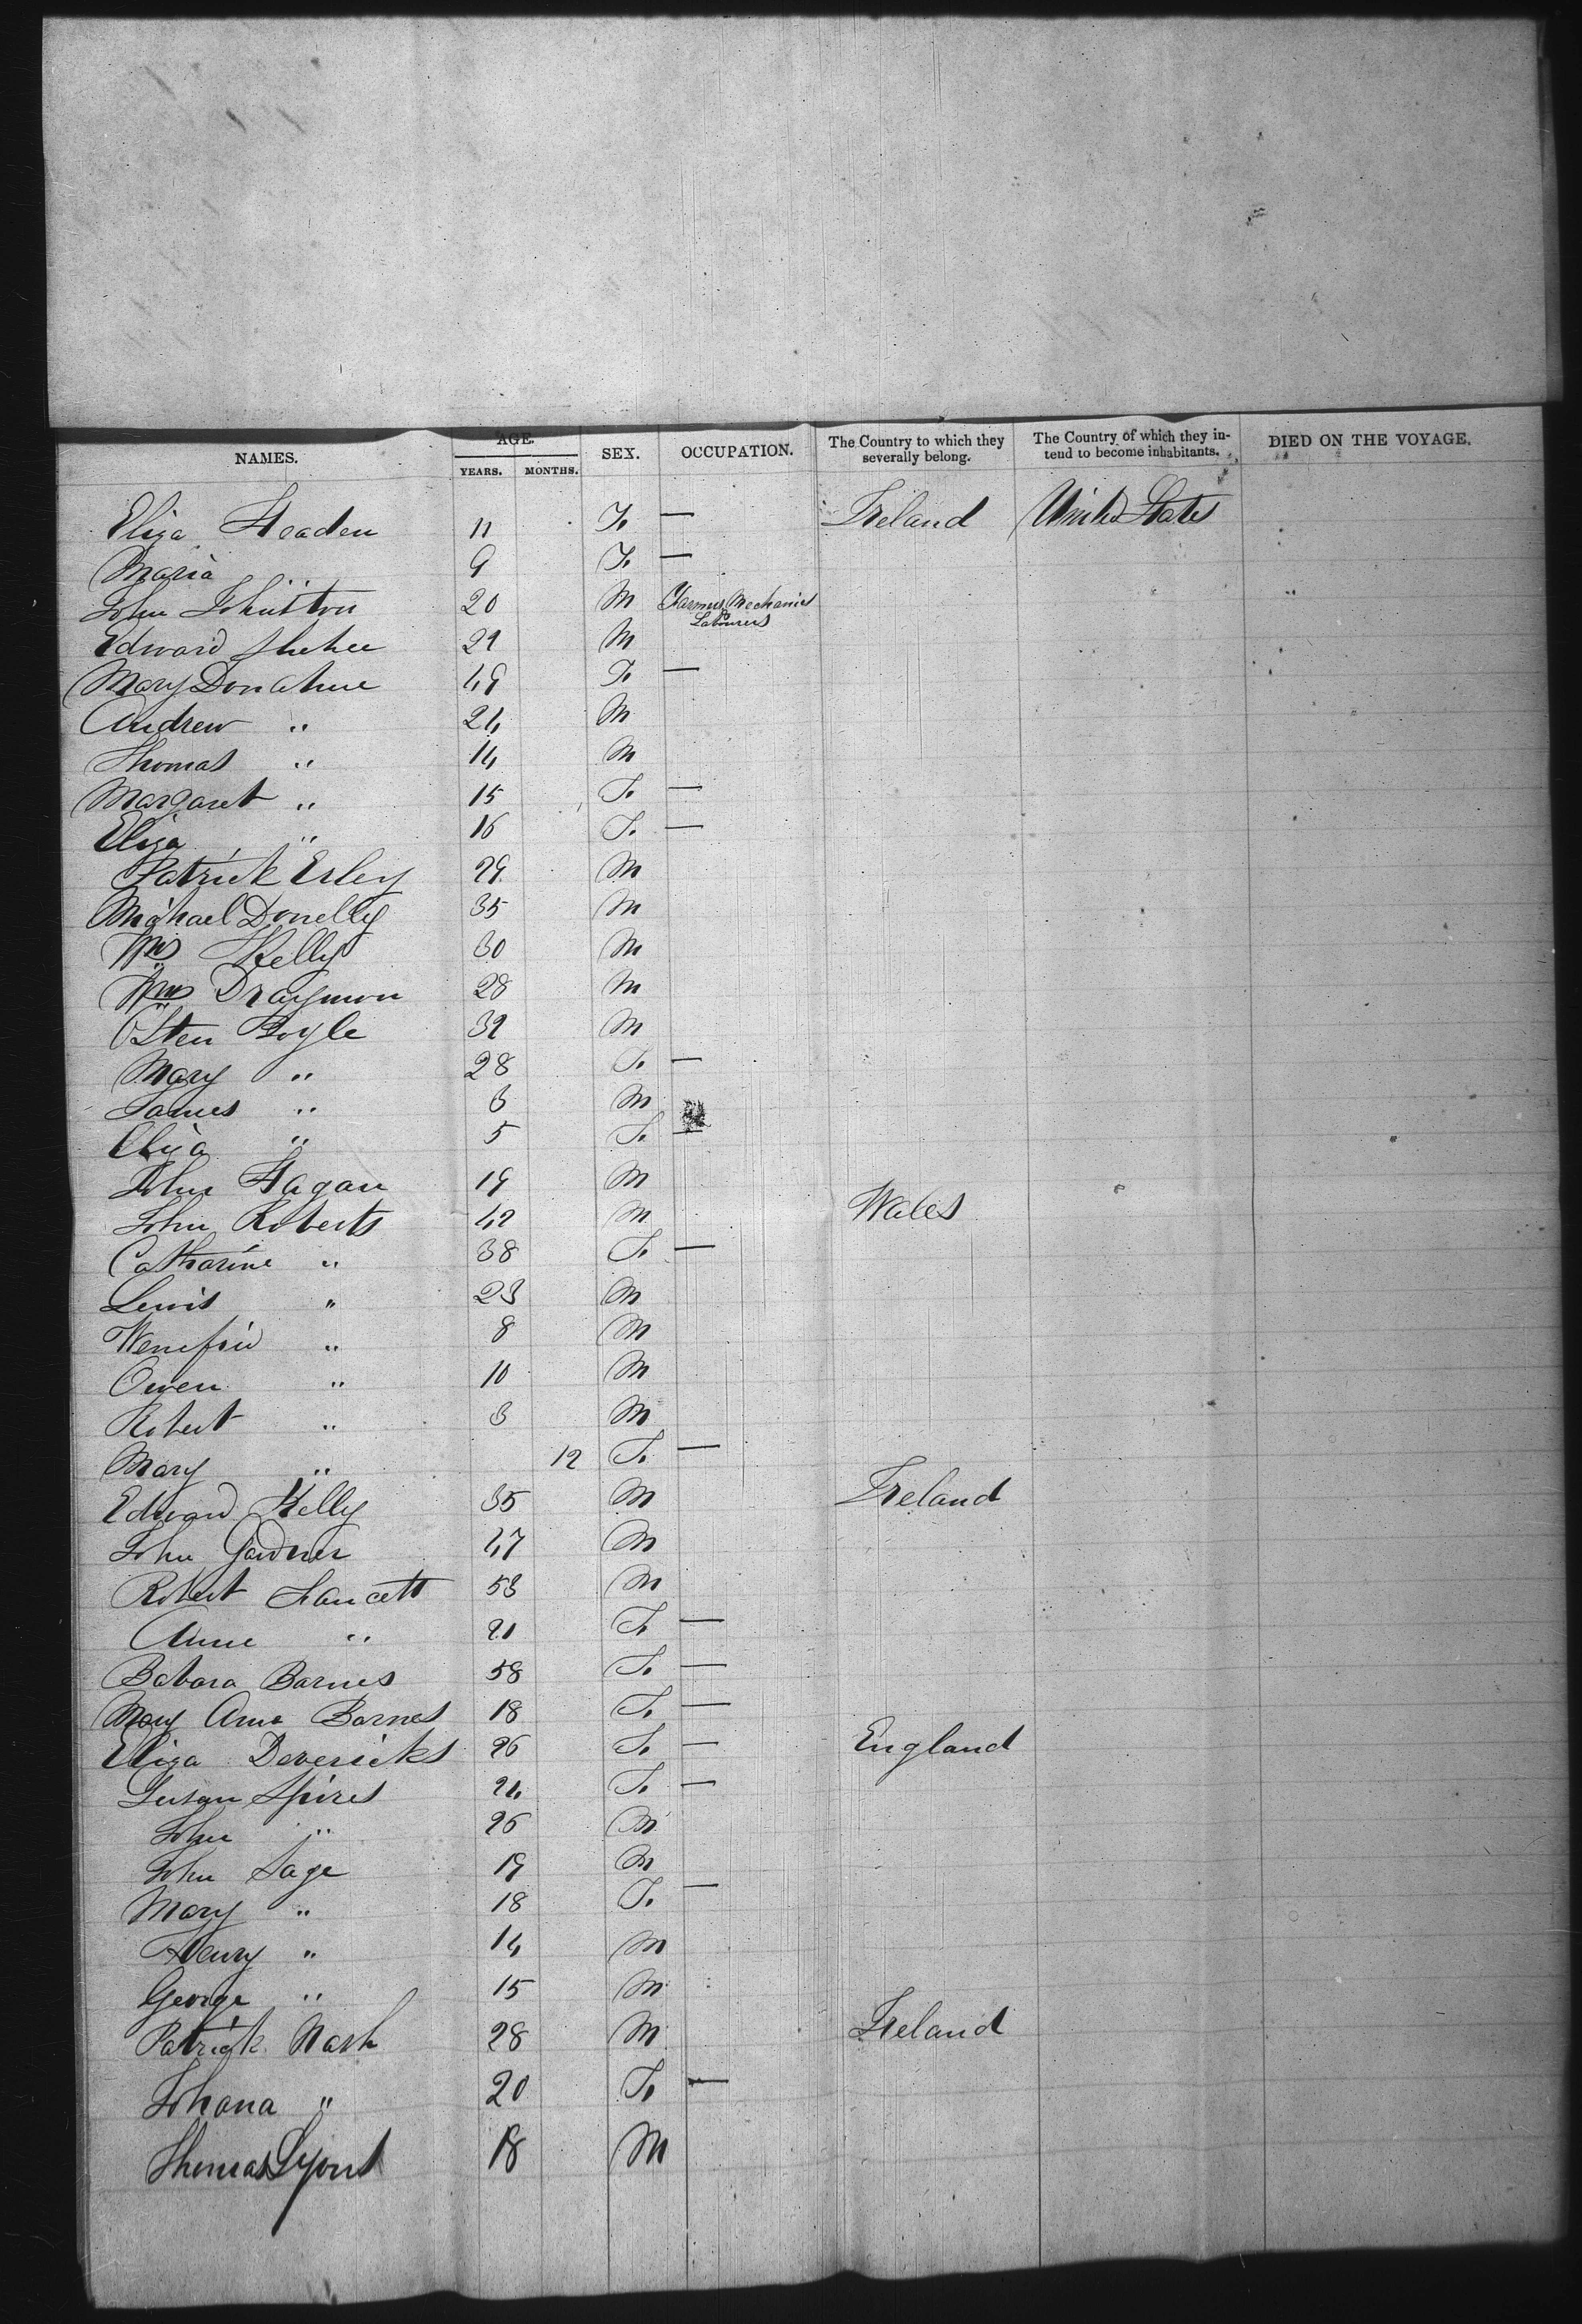 NAMES. AGE. YEARS. MONTHS. SEX. OCCUPATION. The Country to which they severally belong. The Country of which they intend to become inhabitants. DIED ON THE VOYAGE.
Eliza Headen 11 F. — Ireland United States
Maria " 9 F. —
John Johnston 20 M Farmers Mechanics & Labourers
Edward Shehee 29 M
Mary Donahue 49 F. —
Andrew " 24 M
Thomas " 14 M
Margaret " 15 F. —
Eliza " 16 F. —
Patrick Erley 29 M
Michael Donelly 35 M
Wm Kelly 30 M
Wm Draymon 28 M
Osten Boyle 39 M
Mary " 28 F. —
James " 3 M
Eliza " 5 F. —
John Hagan 19 M
John Roberts 42 M Wales
Catharine " 38 F. —
Lewis " 23 M
Wenefrid " 8 M
Owen " 10 M
Robert " 3 M
Mary " 12 F. —
Edward Kelly 35 M Ireland
John Gardner 47 M
Robert Fancett 53 M
Anne " 21 F. —
Babara Barnes 58 F. —
Mary Anne Barnes 18 F. —
Eliza Devericks 26 F. — England
Susan Spires 24 F. —
John " 26 M
John Sage 19 M
Mary " 18 F. —
Henry " 14 M
George " 15 M
Patrick Nash 28 M Ireland
Johana " 20 F. —
Thomas Lyons 18 M